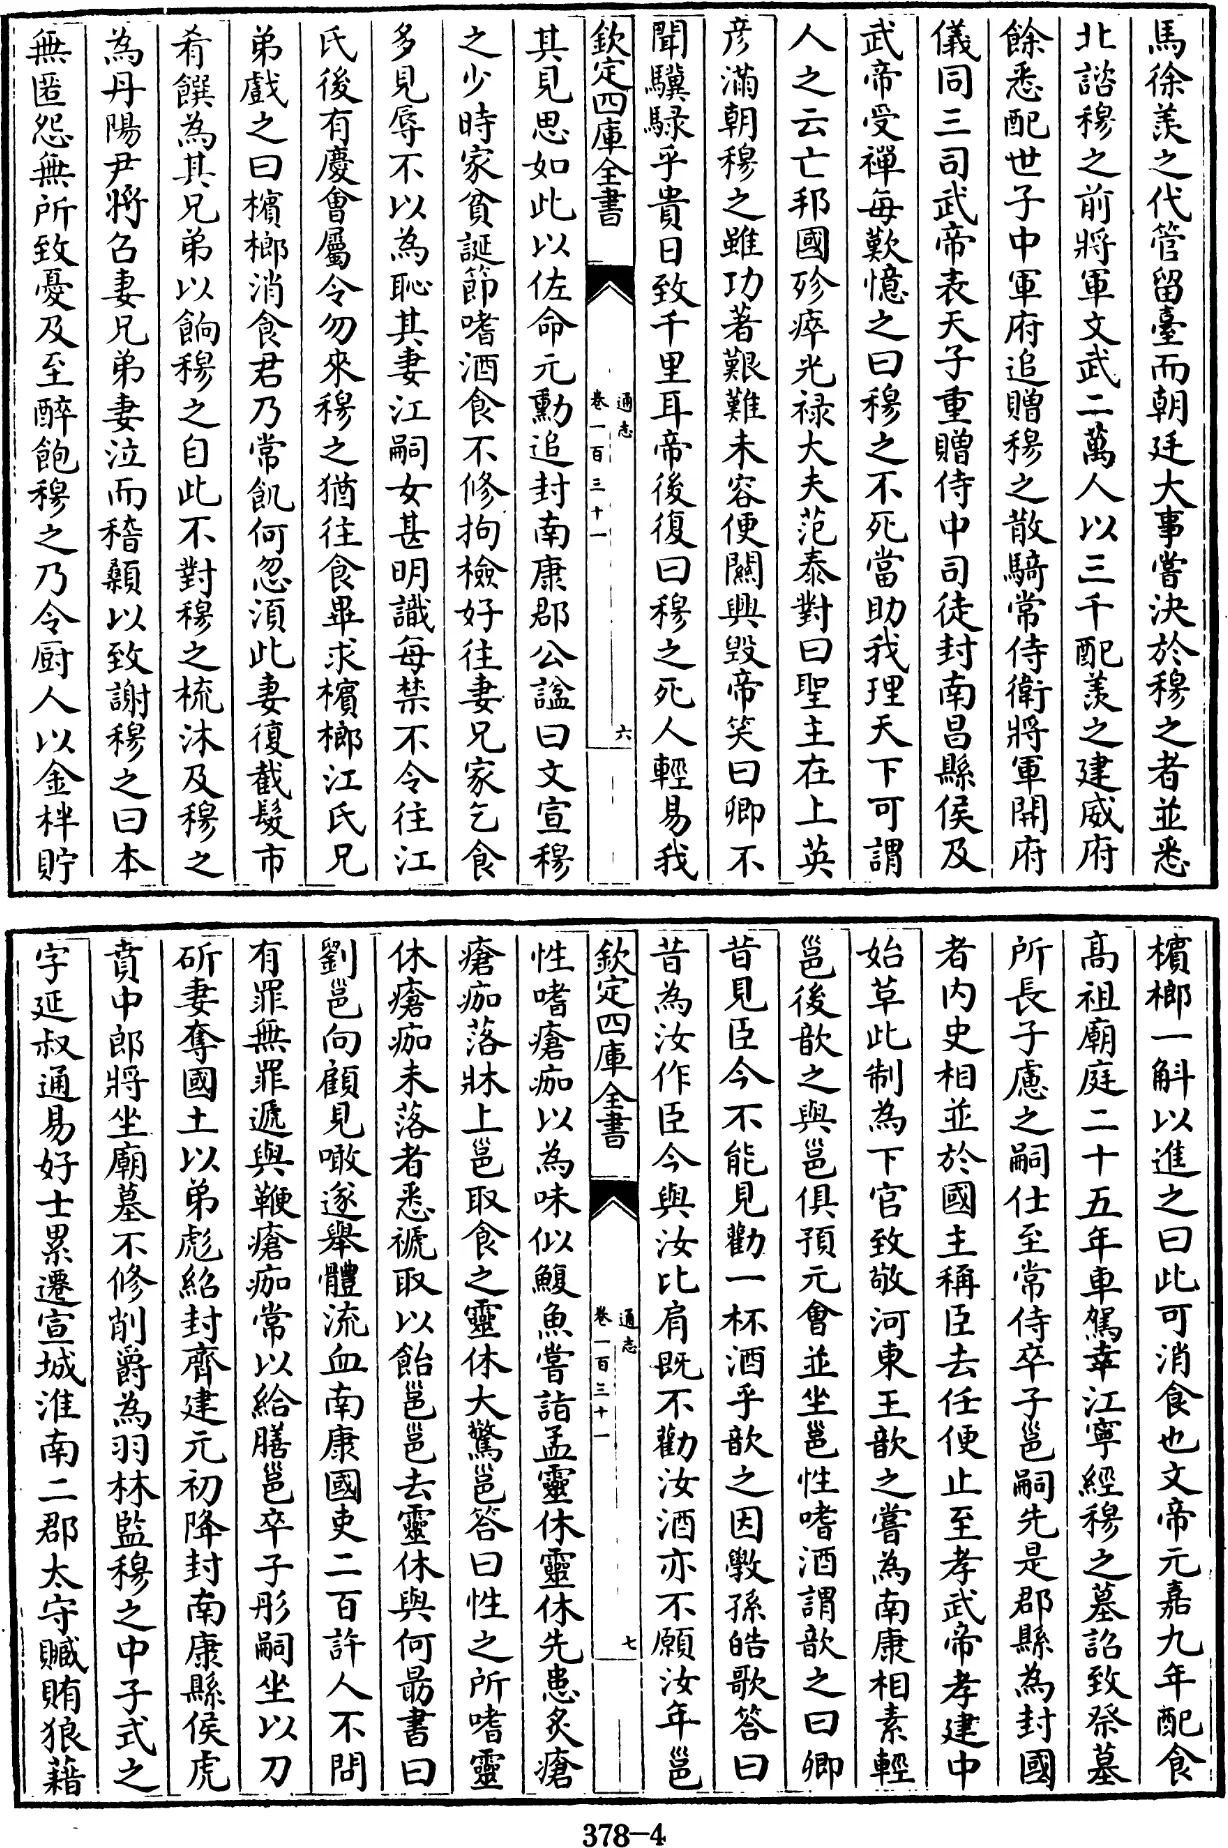 馬徐羨之代管留臺而朝廷大事嘗決於穆之者並悉
北諮穆之前將軍文武二萬人以三千配羨之建威府
餘悉配世子中軍府追贈穆之散騎常侍衛將軍開府
儀同三司武帝表天子重贈侍中司徒封南昌縣侯及
武帝受禪每歎憶之曰穆之不死當助我理天下可謂
人之云亡邦國殄瘁光禄大夫范泰對曰聖主在上英
彦滿朝穆之雖功著艱難未容便關興毀帝笑曰卿不
聞驥騄乎貴日致千里耳帝後復曰穆之死人輕易我
欽定四庫全書
通志
卷一百三十一
六
其見思如此以佐命元勳追封南康郡公諡曰文宣穆
之少時家貧誕節嗜酒食不修拘檢好往妻兄家乞食
多見辱不以為恥其妻江嗣女甚明識每禁不令往江
氏後有慶會屬令勿來穆之猶往食畢求檳榔江氏兄
弟戲之曰檳榔消食君乃常飢何忽湏此妻復截髮市
肴饌為其兄弟以餉穆之自此不對穆之梳沐及穆之
為丹陽尹將召妻兄弟妻泣而稽顙以致謝穆之曰本
無匿怨無所致憂及至醉飽穆之乃令厨人以金柈貯
檳榔一斛以進之曰此可消食也文帝元嘉九年配食
高祖廟庭二十五年車駕幸江寧經穆之墓詔致祭墓
所長子慮之嗣仕至常侍卒子邕嗣先是郡縣為封國
者内史相並於國主稱臣去任便止至孝武帝孝建中
始革此制為下官致敬河東王歆之嘗為南康相素輕
邕後歆之與邕俱預元會並坐邕性嗜酒謂歆之曰卿
昔見臣今不能見勸一杯酒乎歆之因斆孫皓歌答曰
昔為汝作臣今與汝比肩既不勸汝酒亦不願汝年邕
欽定四庫全書
通志
卷一百三十一
七
性嗜瘡痂以為味似鰒魚嘗詣孟靈休靈休先患炙瘡
瘡痂落牀上邕取食之靈休大驚邕答曰性之所嗜靈
休瘡痂未落者悉褫取以飴邕邕去靈休與何勗書曰
劉邕向顧見噉遂舉體流血南康國吏二百許人不問
有罪無罪遞與鞭瘡痂常以給膳邕卒子彤嗣坐以刀
斫妻奪國土以弟彪紹封齊建元初降封南康縣侯虎
賁中郎將坐廟墓不修削爵為羽林監穆之中子式之
字延叔通易好士累遷宣城淮南二郡太守贓賄狼藉
378-4